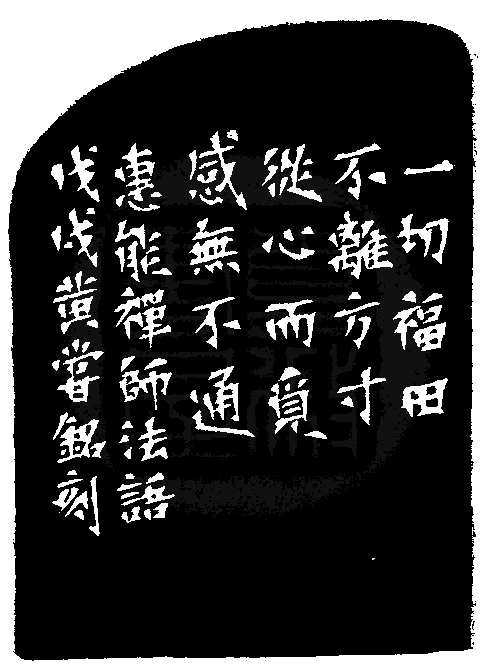 一切福田
不離方寸
從心而覓
感無不通
惠能禪師法語
戊戌黄嘗銘刻